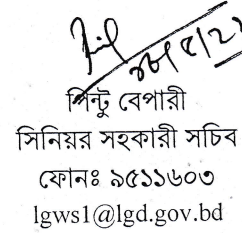 পিন্টু বেপারী
সিনিয়র সহকারী সচিব
ফোনঃ ৯৫১১৬০৩
lgws1@lgd.gov.bd